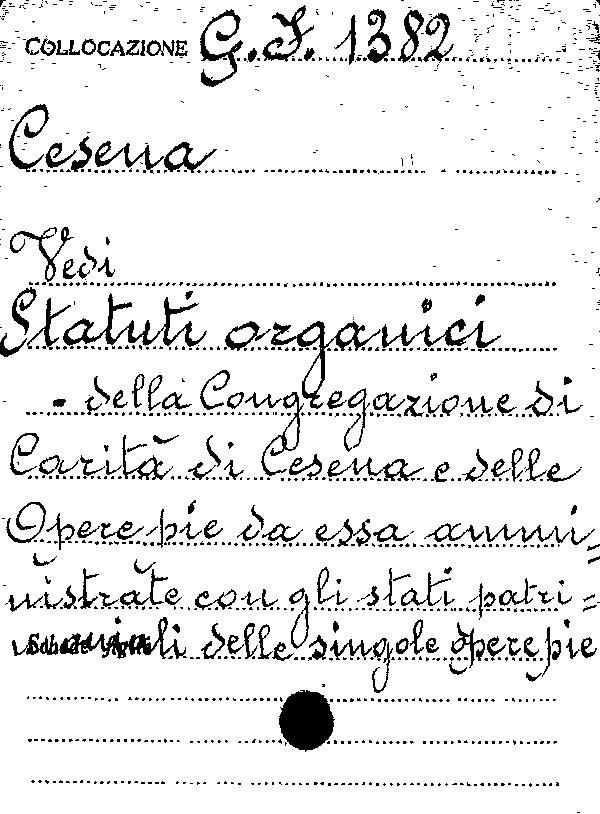 COLLOCAZIONE G. I. 1382
Cesena
Vedi
Statuti organici
- della Congregazione di
Carità di Cesena e delle
Opere pie da essa ammi=
nistrate con gli stati patri=
moniali delle singole opere pie